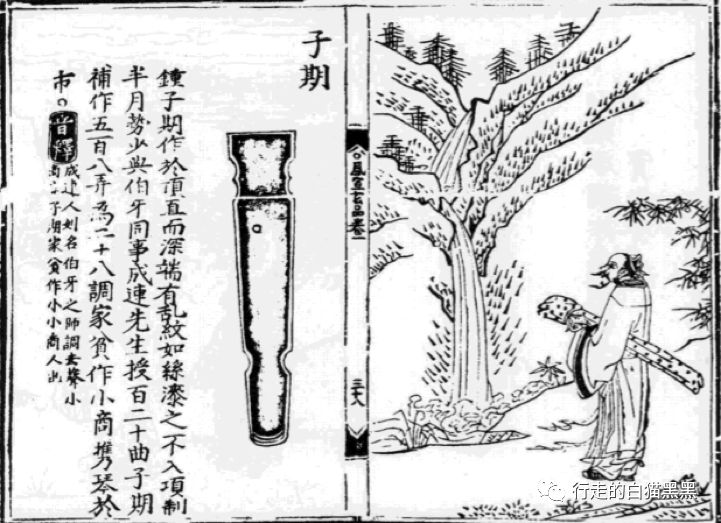 子期
鍾子期作於頂直而深端有乱紋如絲漆之不入項制
半月勢少與伯牙同事成連先生授百二十曲子期
補作五百八弄為二十八調家貧作小商携琴於
市
音釋
成連人姓名伯牙之師調去聲小
商子期家貧作小小商人出
風宣玄品卷一
三十八
行走的白猫黑黑